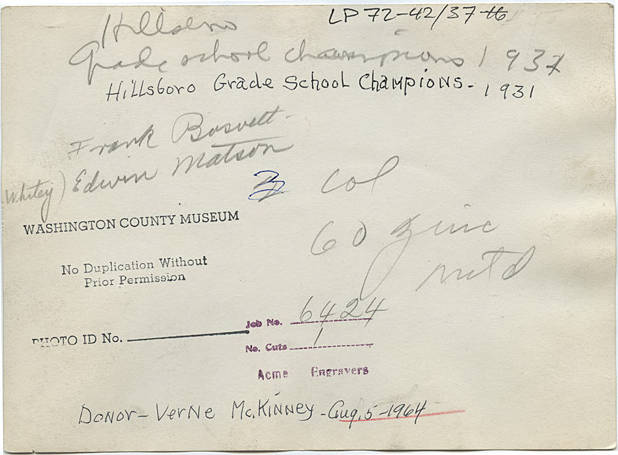 LP 72-42/37-16
Hillsboro
Grade school champions 1931
Hillsboro Grade School Champions - 1931
Frank Bosvett
(Whitey) Edwin Matson
3 col
60 zinc
mtd
WASHINGTON COUNTY MUSEUM
No Duplication Without
Prior Permission
PHOTO ID No.
Job No. 6424
No. Cuts 1
Acme Engravers
Donor - Verne McKinney - Aug. 5 - 1964